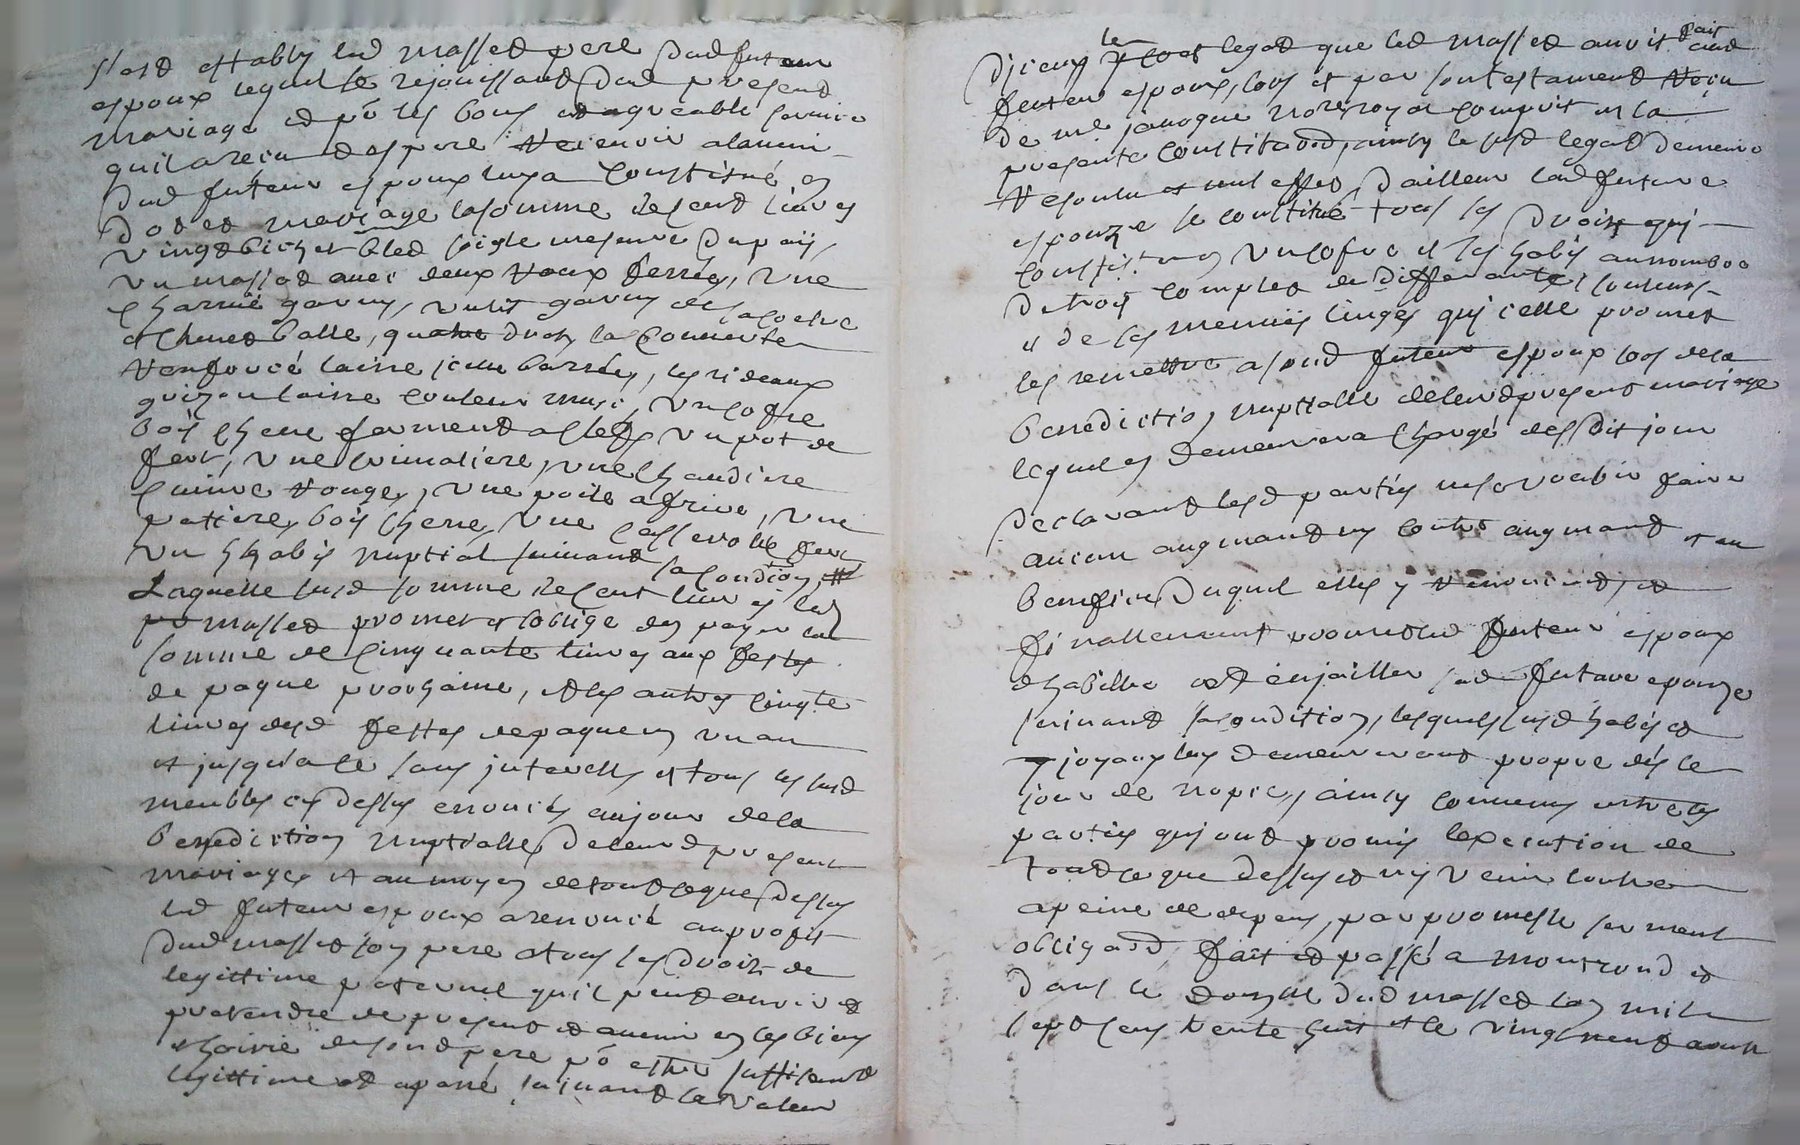 s'est estably led massed pere dud futeur
espoux lequel se rejouissant dud present
mariage et po les bons et agreable service
qu'il a reçu et espere recevoir a lavenir
dud futeur espoux luy a constitué en
dot et mariage la somme de cent livres
vingt bichet bled seigle mesure du païs,
un massod avec deux roux ferrés, une
charrue garny, un lit garny de sa coetre
et chevet balle, quatre draps, la couverte
renforcé laine jeune barrées, les rideaux
laine couleur musc, un cofre
bois chene fermend a cleffs un pot de
fert, une crimaliere, une chaudiere
cuivre rouge, une poile a frire, une
patiere bois chene, une casserolle fert
un habis nuptial suivant sa condion,
Laquelle susd somme de cent livres led
massed promet et s'oblige de payer la
somme de cinquante livres aux festes
de paque prochaine, et les autres cinqte
livres desd festes de paque en un an
et jusqu'a ce sans interests et tous les susd
meubles cy dessus enoncés au jour de la
benediction nuptialle de leurd present
mariage, et au moyen de tout ce que dessus
led futeur espoux a renoncé au profit
dud massed son pere a tous les droits de
legittime paternel qu'il peut avoir et
pretendre de present et avenir en les biens
et hoirie de sond pere po estre suffisant
legittime et apané suivant la valeur
d'iceux le legat que led massed auroit fait aud
futeur espoux, lors et par son testament reçu
de me janoque nore royal compris en la
presente constitaon, ainsy le susd legat demeure
resoulu et nul effet, d'ailleur lad future
espouze se constitue tous ses droits qui
un cofre et ses habis au nombre
de trois complet de differante couleurs
et de ses menus linges qu'icelle promet
les remettre a soud futeur espoux lors de la
benediction nuptialle de leurd present mariage
lequel en demeurera chargé desdit jour
declarant lesd parties ne vouloir faire
aucun augmand ny contre augmand et au
benefice duquel elles y renoncent, et
finallement promet led futeur espoux
d'habiller et enjoailler lad future epouze
suivant sa condition, lesquels susd habis et
joyaux luy demeureront propre dès le
jour de nopce, ainsy convenu entre les
parties qui ont promis l'execution de
tout ce que dessus et ny venir contre
a peine de depens, par promesse serment
obligaon, fait et passé a montrond et
dans le domille dud massed lan mil
sept cens trente huit et le vingt neuf aoust